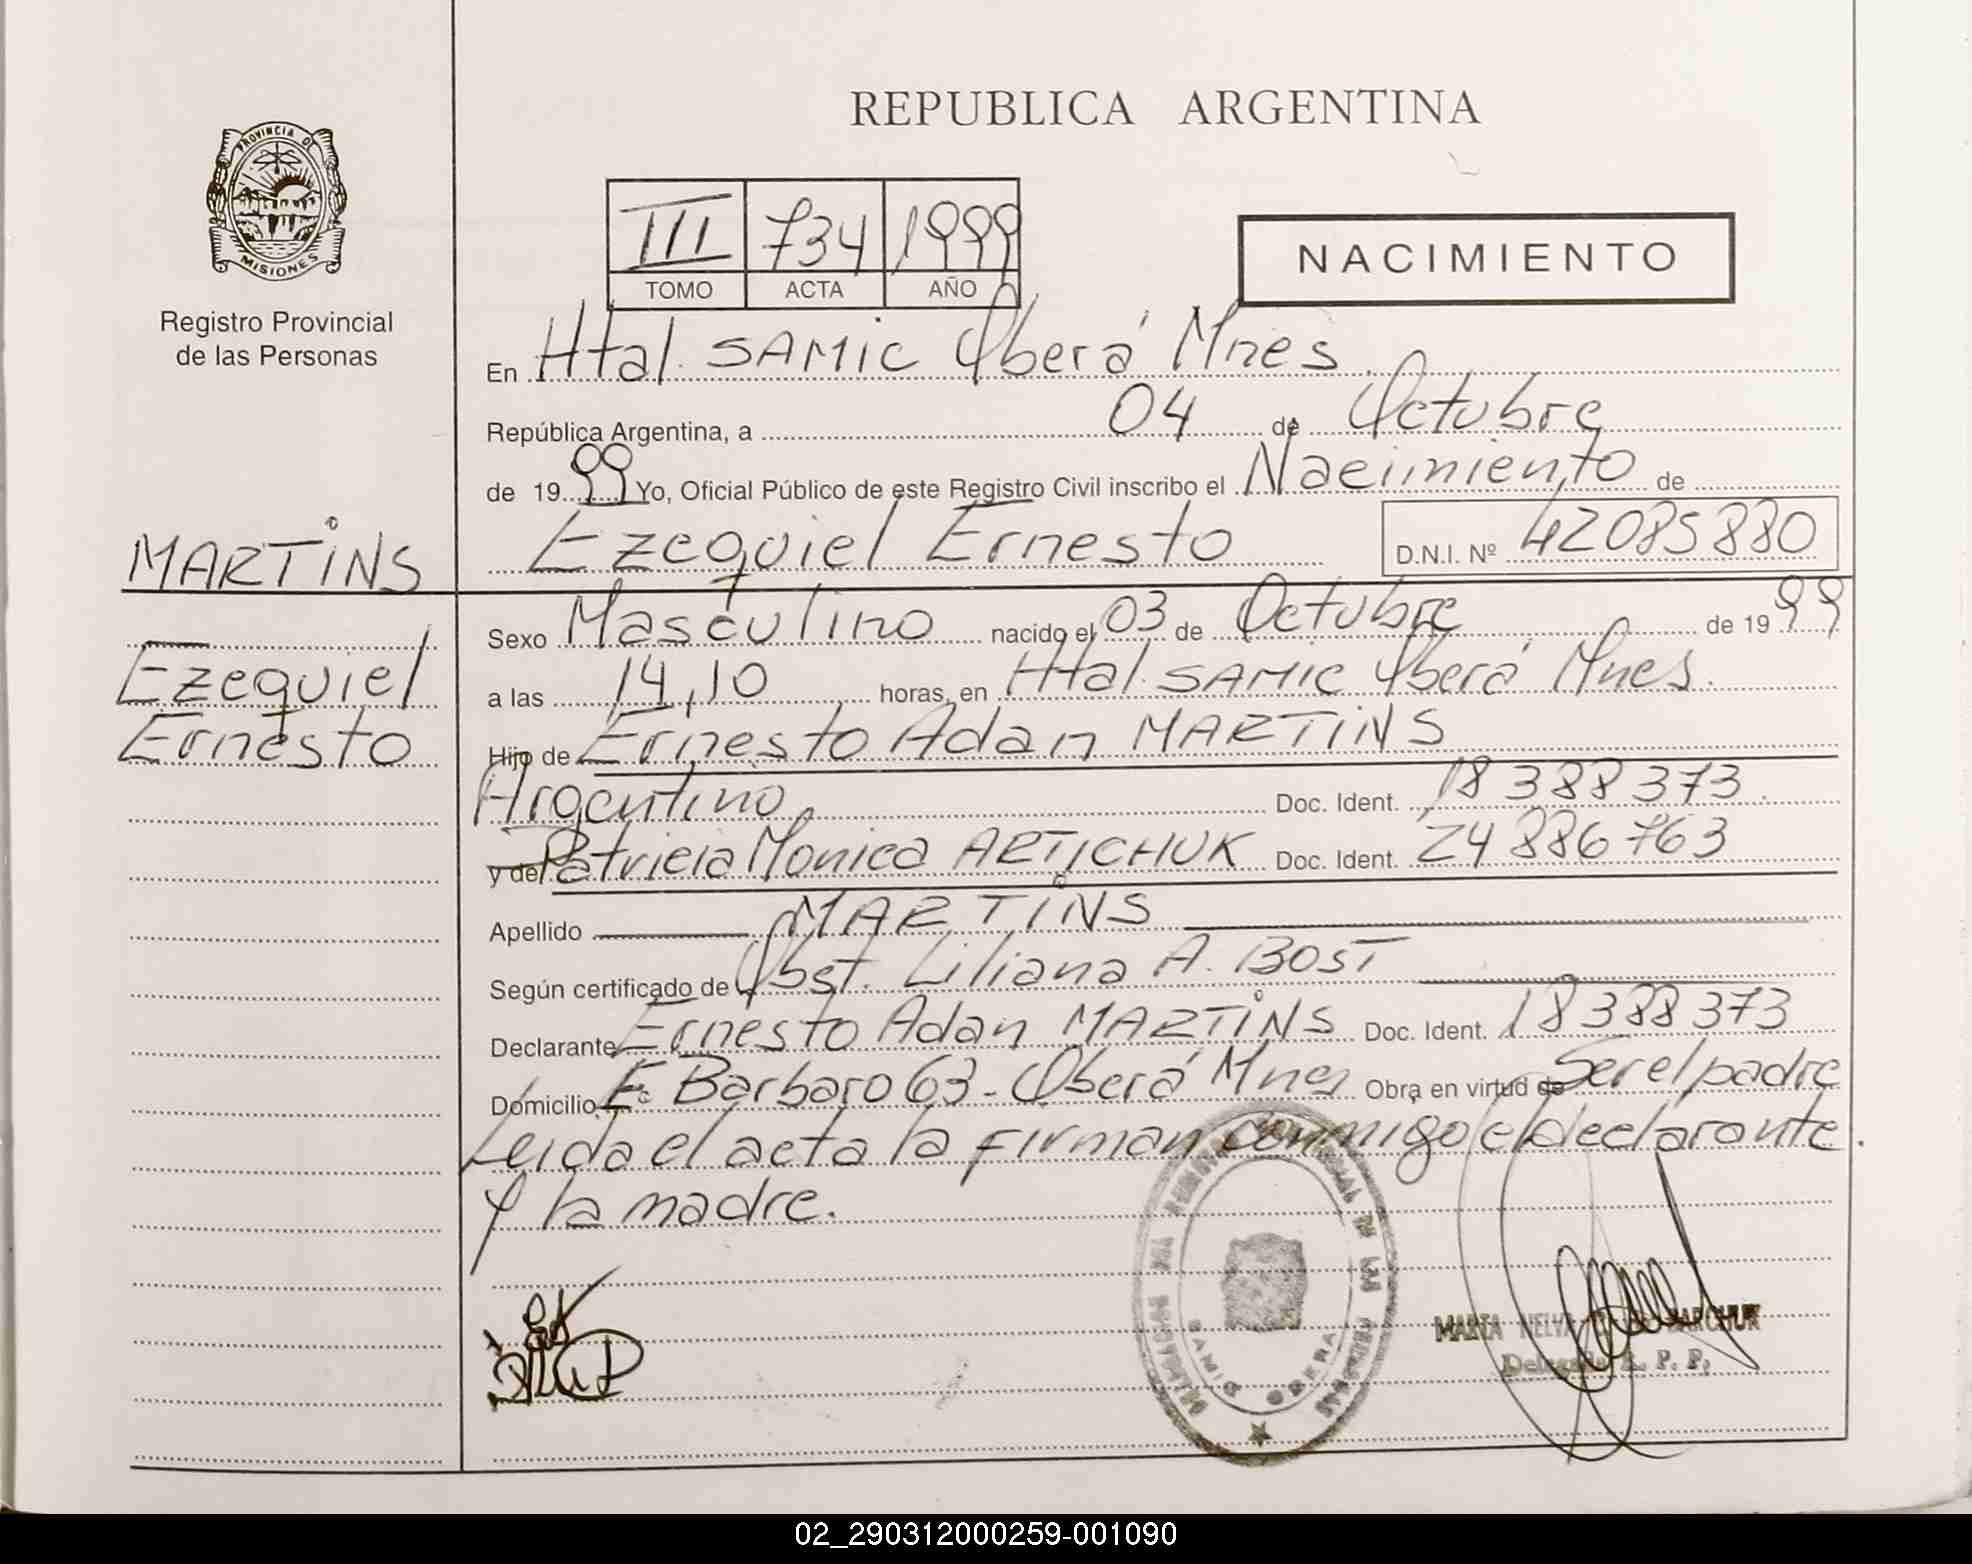 REPUBLICA ARGENTINA
PROVINCIA D
MISIONES
Registro Provincial
de las Personas
III 734 1999
TOMO ACTA AÑO
NACIMIENTO
En Htal. SAMIC Oberá Mnes.
República Argentina, a 04 de Octubre
de 1999 Yo, Oficial Público de este Registro Civil inscribo el Nacimiento de
MARTINS
Ezequiel Ernesto D.N.I. Nº 42085880
Sexo Masculino nacido el 03 de Octubre de 1999
Ezequiel
a las 14,10 horas, en Htal. SAMIC Oberá Mnes.
Ernesto
Hijo de Ernesto Adan MARTINS
Argentino Doc. Ident. 18388373.
y de Patricia Monica ARTICHUK Doc. Ident. 24886763
Apellido MARTINS
Según certificado de Obst. Liliana A. BOST
Declarante Ernesto Adan MARTINS Doc. Ident. 18388373
Domicilio Eº Barbaro 63 - Oberá Mnes Obra en virtud de Ser el padre
Leida el acta la firman conmigo el declarante.
y la madre.
SAMIC OBERA
MARTA NELVA
Delegada R. P. P.
02_290312000259-001090